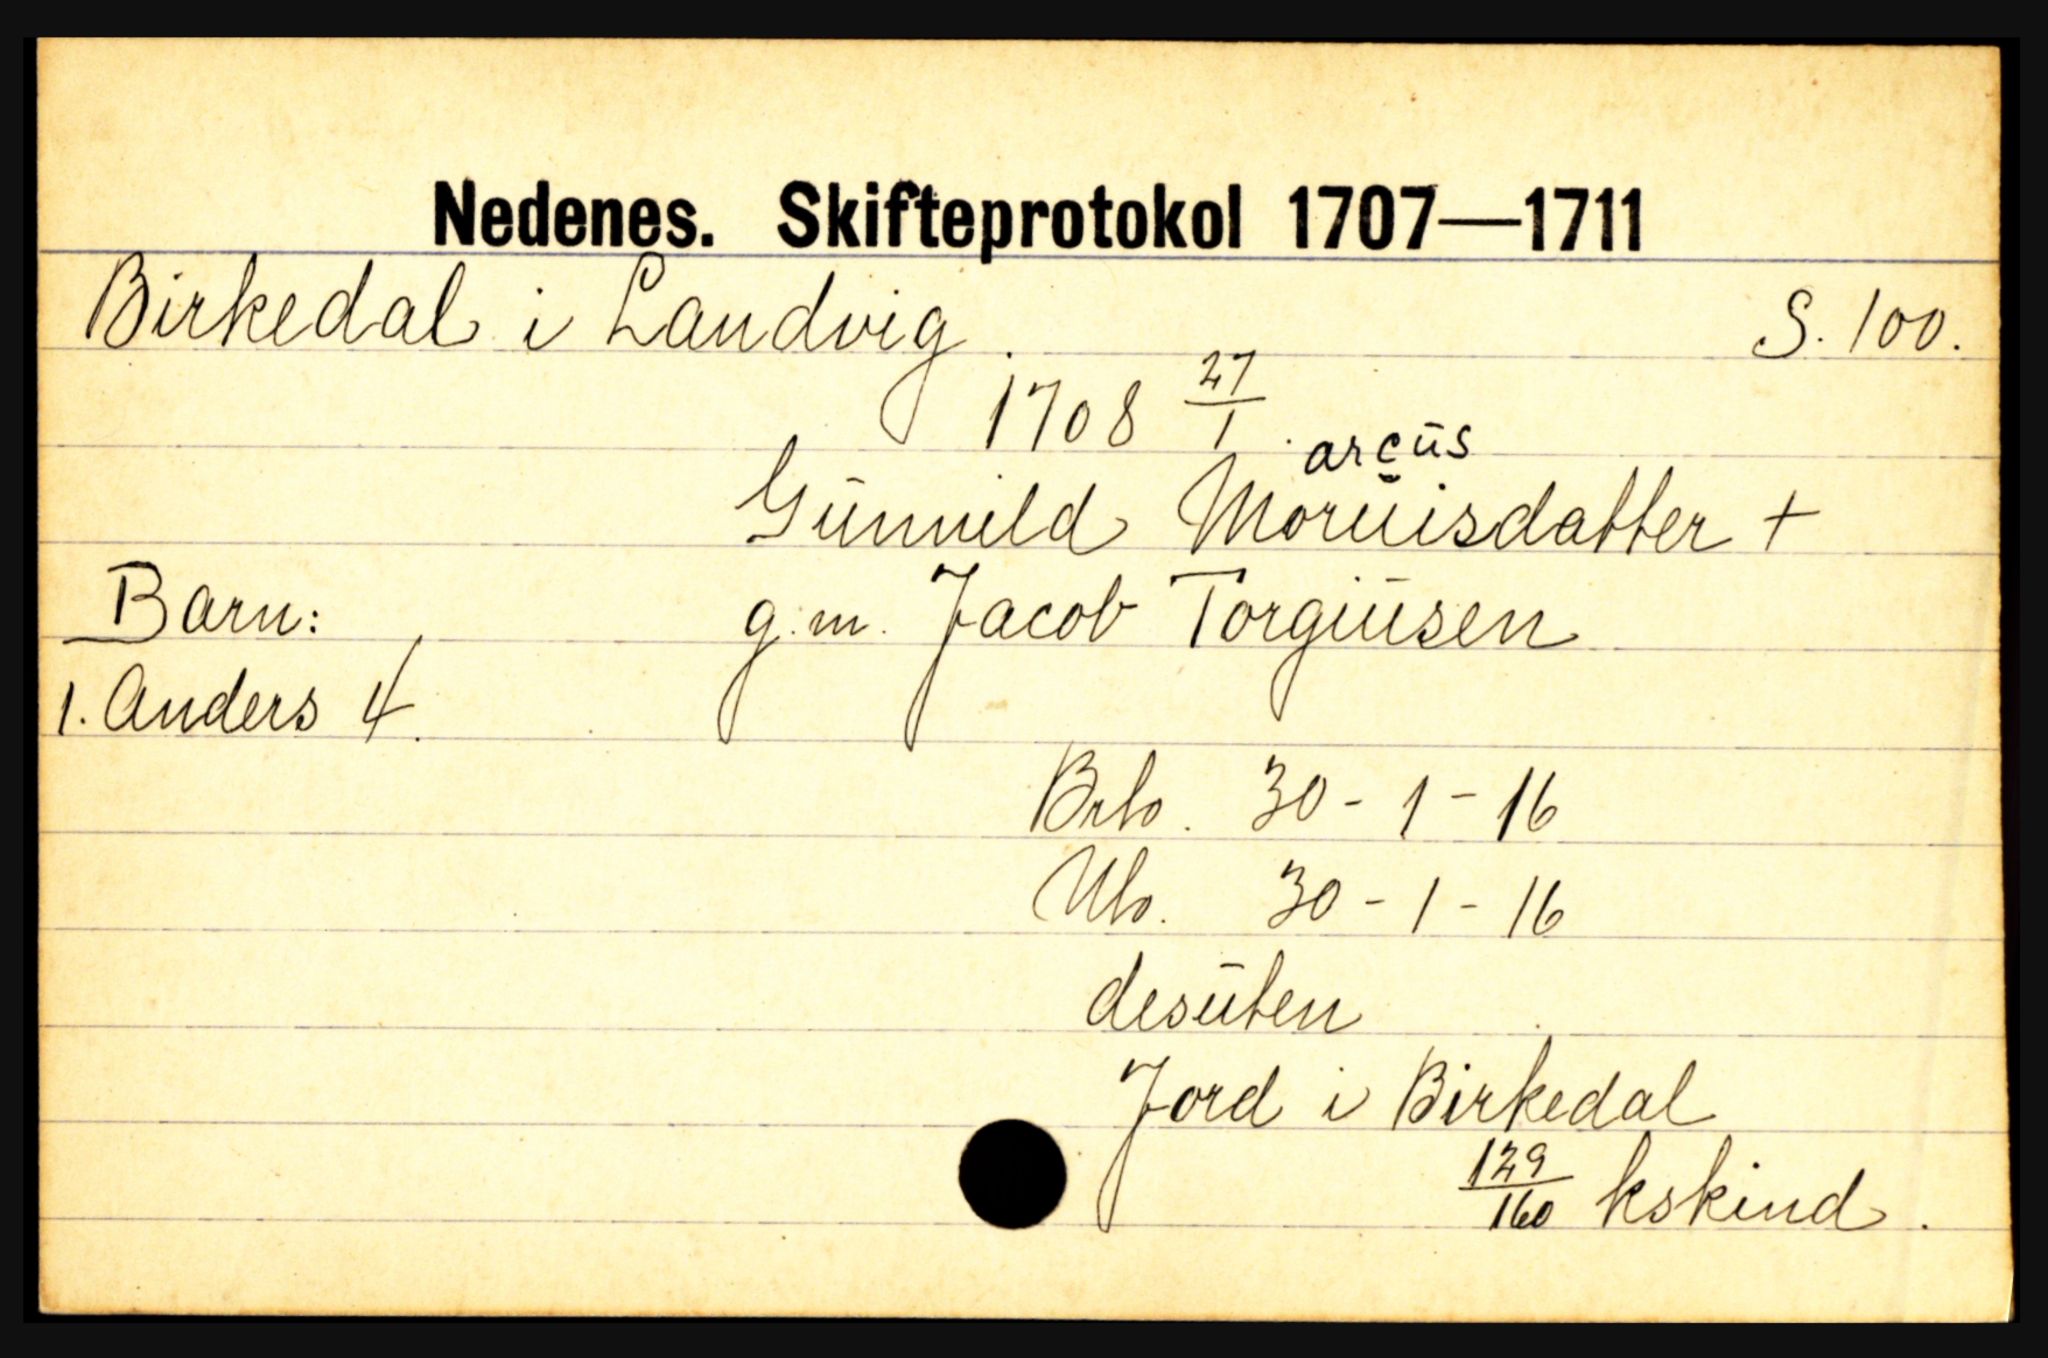 Nedenes. Skifteprotokol 1707—1711
Birkedal i Landvig. S. 100.
1708 27/1.
arcūs
Gūnnild Morūisdatter +
Barn: g.m. Jacob Torgiūsen
1. Anders 4.
Brto. 30 - 1 - 16
Nto. 30 - 1 - 16
desūten
Jord i Birkedal
129/160 kskind.